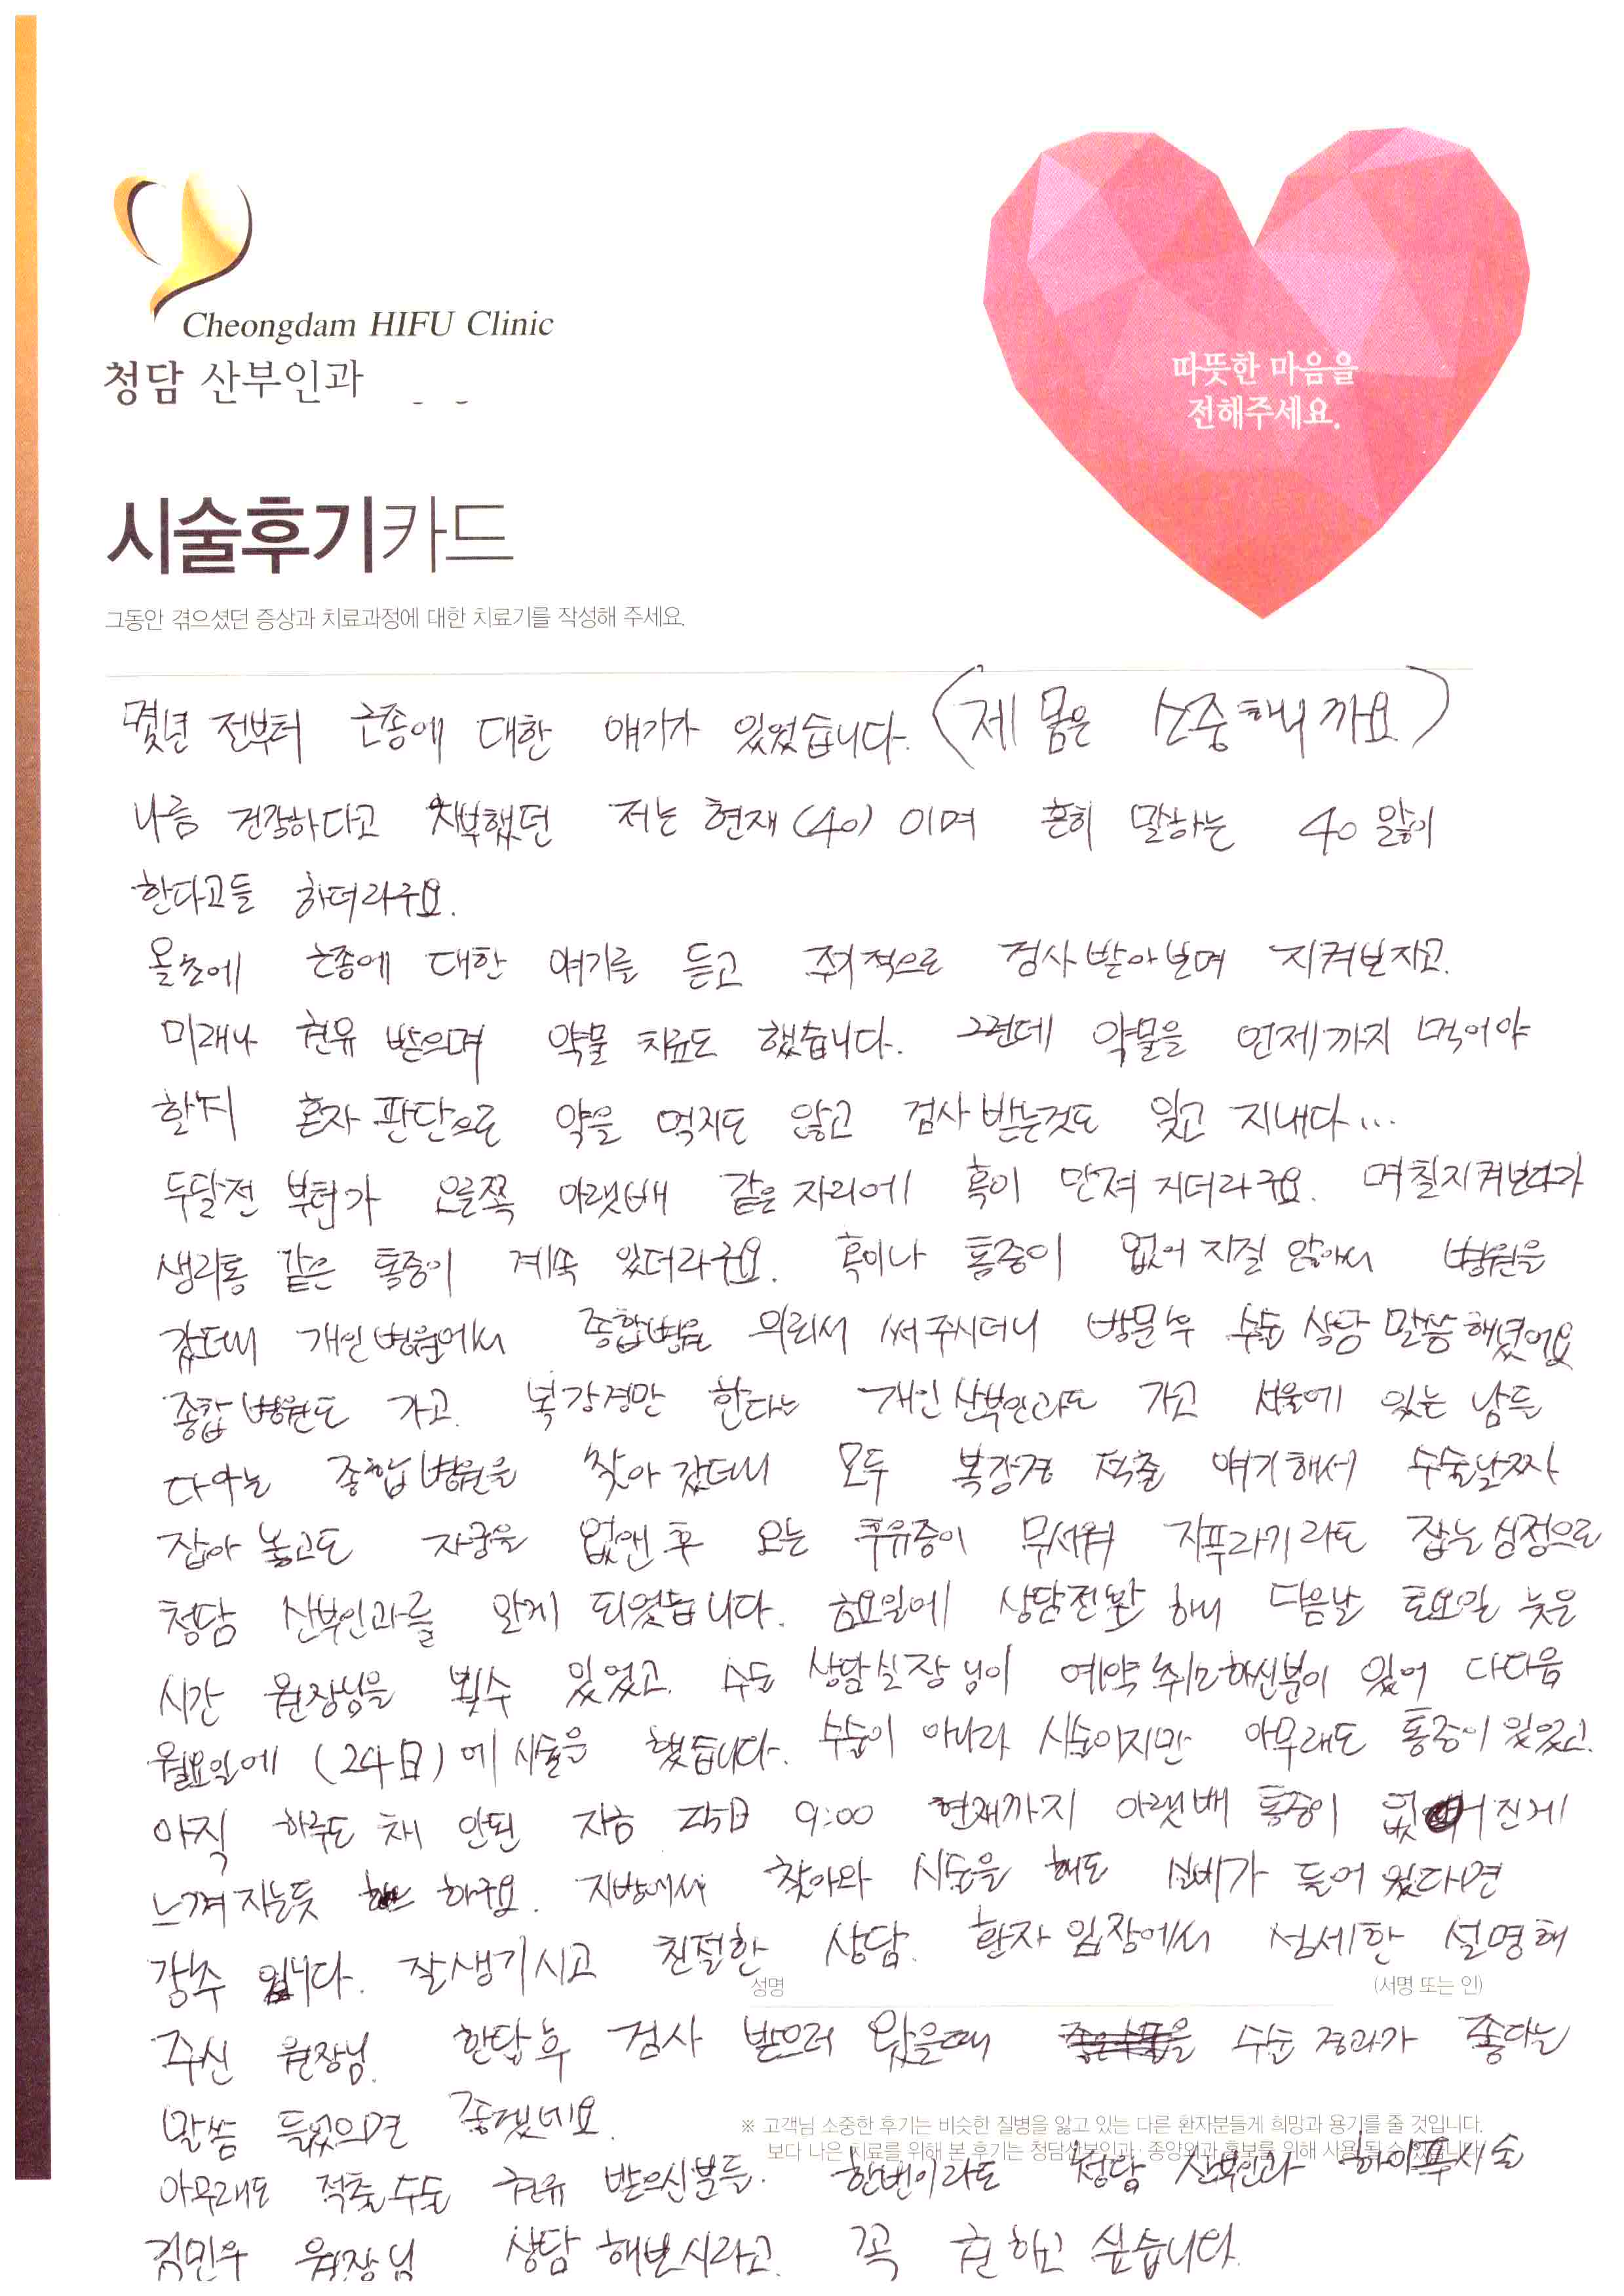 Cheongdam HIFU Clinic
청담 산부인과
따뜻한 마음을
전해주세요.
시술후기카드
그동안 겪으셨던 증상과 치료과정에 대한 치료기를 작성해 주세요.
몇년 전부터 근종에 대한 얘기가 있었습니다. (제 몸은 소중하니까요)
나름 건강하다고 자부했던 저는 현재 (40) 이며 흔히 말하는 40 앓이
한다고들 하더라구요.
올초에 근종에 대한 얘기를 듣고 주기적으로 검사 받아보며 지켜보자고.
미레나 권유 받으며 약물 치료도 했습니다. 그런데 약물을 언제까지 먹어야
할지 혼자 판단으로 약을 먹지도 않고 검사 받는것도 잊고 지내다...
두달전 부턴가 오른쪽 아랫배 같은 자리에 혹이 만져 지더라구요. 며칠지켜보다가
생리통 같은 통증이 계속 있더라구요. 혹이나 통증이 없어 지질 않아서 병원을
갔더니 개인병원에서 종합병원 의뢰서 써주시더니 방문후 수술 상담 말씀해셨어요
종합병원도 가고. 복강경만 한다는 개인산부인과도 가고 서울에 있는 남들
다아는 종합병원을 찾아 갔더니 모두 복강경 적출 얘기해서 수술날짜
잡아 놓고도 자궁을 없앤 후 오는 후유증이 무서워 지푸라기라도 잡는 심정으로
청담 산부인과를 알게 되었습니다. 금요일에 상담전화 하니 다음날 토요일 늦은
시간 원장님을 뵐수 있었고. 수술 상담실장님이 예약취소하신분이 있어 다다음
월요일에 (24日)에 시술을 했습니다. 수술이 아니라 시술이지만 아무래도 통증이 있었고.
아직 하루도 채 안된 지금 25日 9:00 현재까지 아랫배 통증이 없어진게
느껴지는듯 하구요. 지방에서 찾아와 시술을 해도 실비가 들어 있다면
강추 입니다. 잘생기시고 친절한 상담. 환자 입장에서 섬세한 설명해
성명
(서명 또는 인)
주신 원장님. 한달후 검사 받으러 왔을때 수술 경과가 좋다는
말씀 들었으면 좋겠네요.
※ 고객님 소중한 후기는 비슷한 질병을 앓고 있는 다른 환자분들게 희망과 용기를 줄 것입니다.
보다 나은 치료를 위해 본 후기는 청담산부인과·종양외과 홍보를 위해 사용될 수 있습니다.
아무래도 적출수술 권유 받으신분들. 한번이라도 청담 산부인과 하이푸시술
김민우 원장님 상담 해보시라고 꼭 권하고 싶습니다.